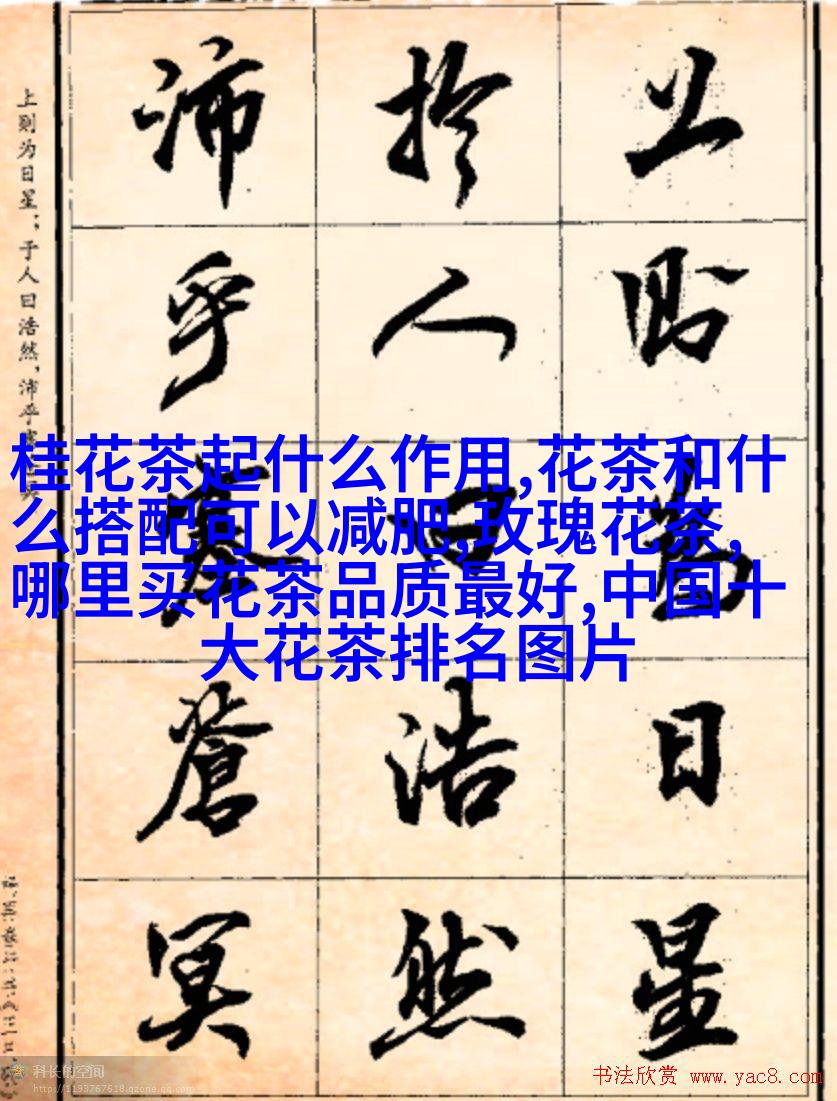 上則為日星
扵人曰浩然
沛乎塞蒼冥
上则为日星；于人曰浩然，沛乎
桂花茶起什么作用,花茶和什
么搭配可以减肥,玫瑰花茶,
哪里买花茶品质最好,中国十
大花茶排名图片
科长的空间
http://1193767618.qzone.qq.com
书法欣赏 www.yac8.com